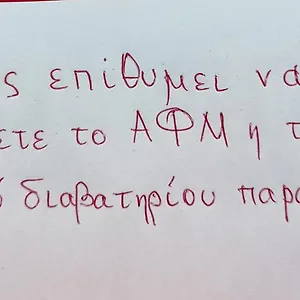 ς επιθυμει νά
ετε το ΑΦΜ η τ
διαβατηρίου παρα